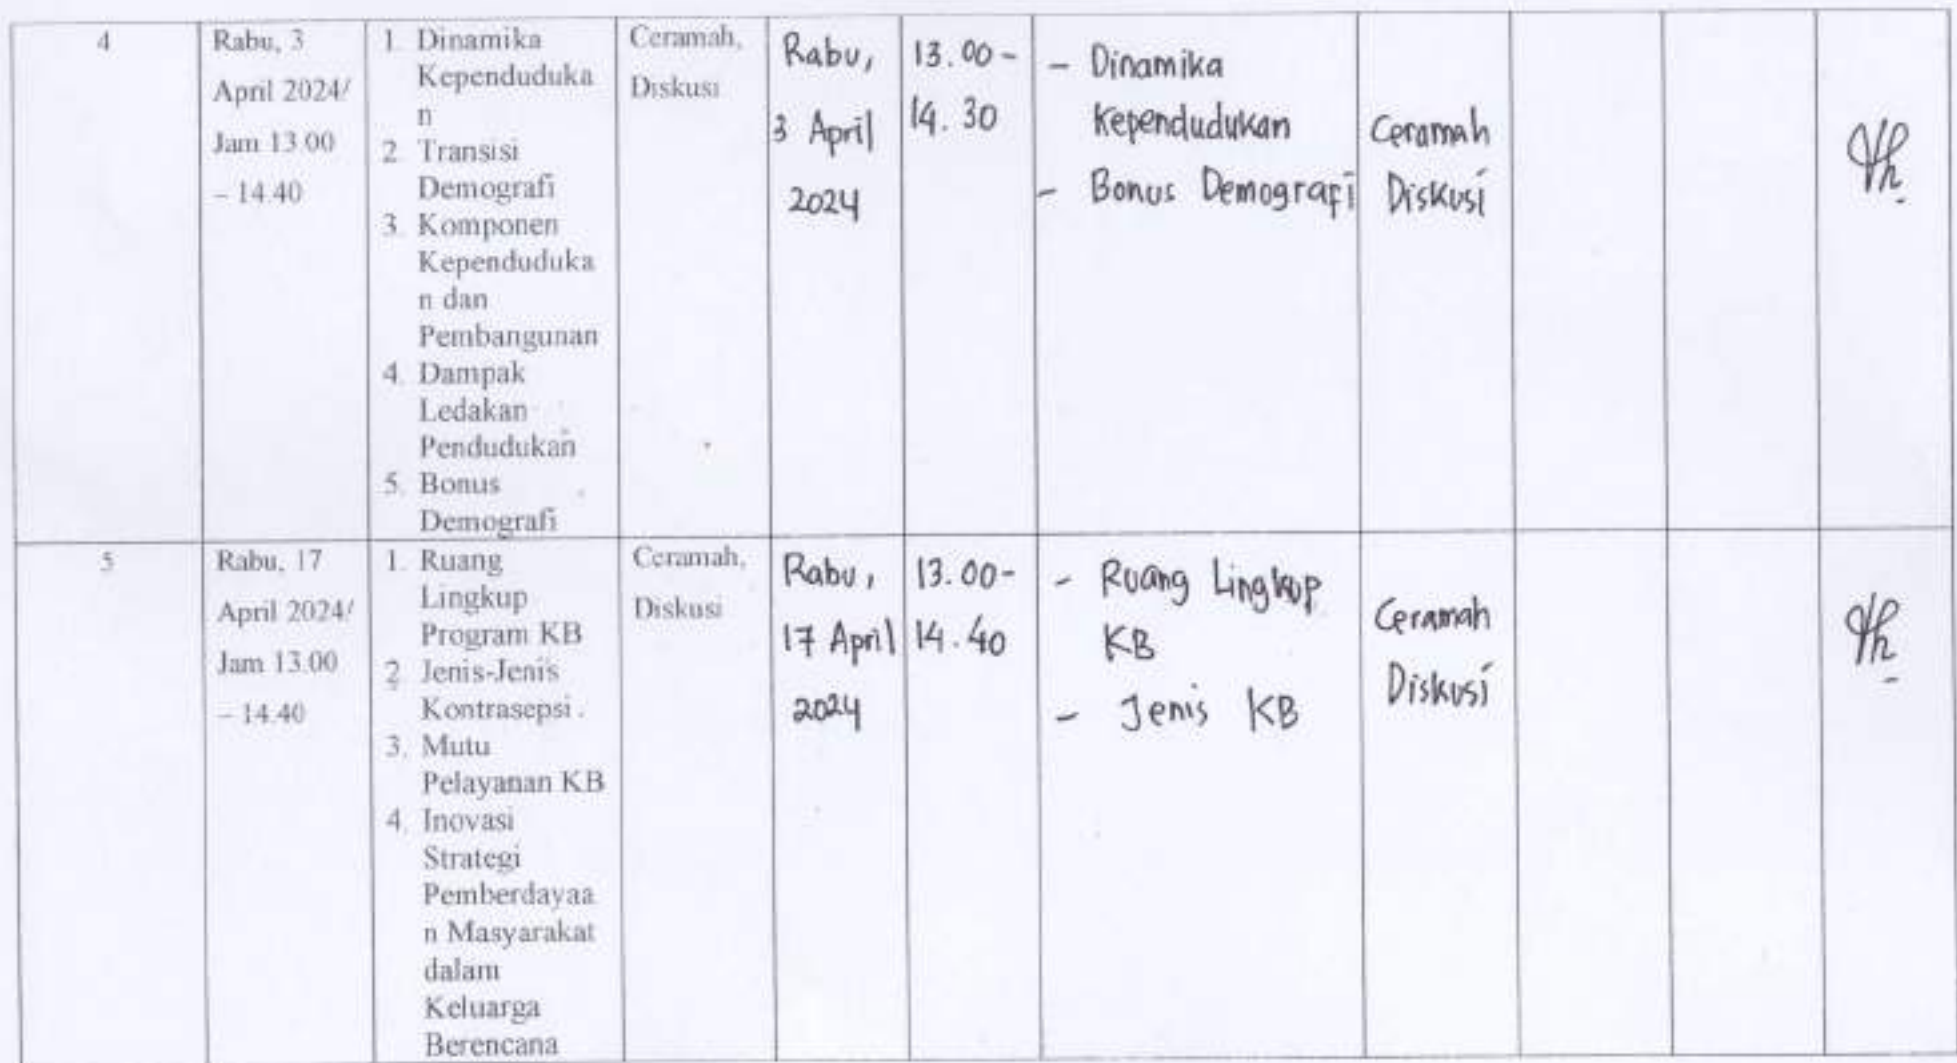 4
Rabu, 3
April 2024/
Jam 13.00
– 14.40
1. Dinamika
Kependuduka
n
2. Transisi
Demografi
3. Komponen
Kependuduka
n dan
Pembangunan
4. Dampak
Ledakan
Pendudukan
5. Bonus
Demografi
Ceramah,
Diskusi
Rabu,
3 April
2024
13.00 -
14.30
- Dinamika
Kependudukan
- Bonus Demografi
Ceramah
Diskusi
5
Rabu, 17
April 2024/
Jam 13.00
– 14.40
1. Ruang
Lingkup
Program KB
2. Jenis-Jenis
Kontrasepsi.
3. Mutu
Pelayanan KB
4. Inovasi
Strategi
Pemberdayaa
n Masyarakat
dalam
Keluarga
Berencana
Ceramah,
Diskusi
Rabu,
17 April
2024
13.00-
14.40
- Ruang Lingkup
KB
- Jenis KB
Ceramah
Diskusi